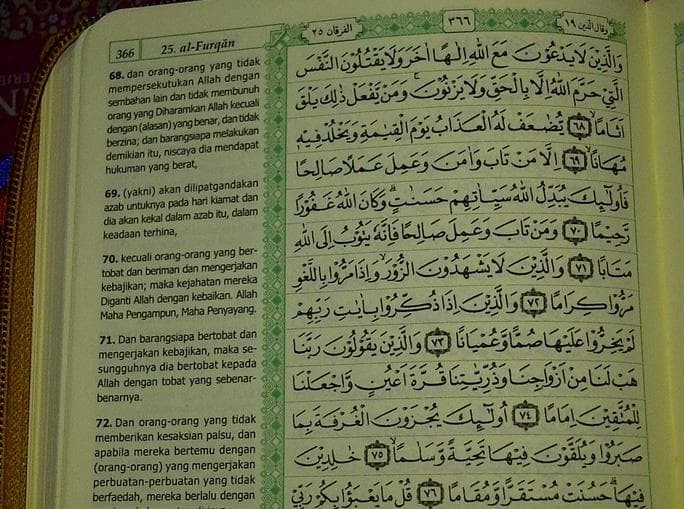 366
25. al-Furqān
الفرقان ٢٥
٣٦٦
وقال الذين ١٩
68. dan orang-orang yang tidak
mempersekutukan Allah dengan
sembahan lain dan tidak membunuh
orang yang Diharamkan Allah kecuali
dengan (alasan) yang benar, dan tidak
berzina; dan barangsiapa melakukan
demikian itu, niscaya dia mendapat
hukuman yang berat,
69. (yakni) akan dilipatgandakan
azab untuknya pada hari kiamat dan
dia akan kekal dalam azab itu, dalam
keadaan terhina,
70. kecuali orang-orang yang ber-
tobat dan beriman dan mengerjakan
kebajikan; maka kejahatan mereka
Diganti Allah dengan kebaikan. Allah
Maha Pengampun, Maha Penyayang.
71. Dan barangsiapa bertobat dan
mengerjakan kebajikan, maka se-
sungguhnya dia bertobat kepada
Allah dengan tobat yang sebenar-
benarnya.
72. Dan orang-orang yang tidak
memberikan kesaksian palsu, dan
apabila mereka bertemu dengan
(orang-orang) yang mengerjakan
perbuatan-perbuatan yang tidak
berfaedah, mereka berlalu dengan
وَالَّذِيْنَ لَا يَدْعُوْنَ مَعَ اللّٰهِ اِلٰهًا اٰخَرَ وَلَا يَقْتُلُوْنَ النَّفْسَ
الَّتِيْ حَرَّمَ اللّٰهُ اِلَّا بِالْحَقِّ وَلَا يَزْنُوْنَۚ وَمَنْ يَّفْعَلْ ذٰلِكَ يَلْقَ
اَثَامًاۙ ٦٨ يُّضٰعَفْ لَهُ الْعَذَابُ يَوْمَ الْقِيٰمَةِ وَيَخْلُدْ فِيْهٖ
مُهَانًاۙ ٦٩ اِلَّا مَنْ تَابَ وَاٰمَنَ وَعَمِلَ عَمَلًا صَالِحًا
فَاُولٰۤىِٕكَ يُبَدِّلُ اللّٰهُ سَيِّاٰتِهِمْ حَسَنٰتٍۗ وَكَانَ اللّٰهُ غَفُوْرًا
رَّحِيْمًا ٧٠ وَمَنْ تَابَ وَعَمِلَ صَالِحًا فَاِنَّهٗ يَتُوْبُ اِلَى اللّٰهِ
مَتَابًا ٧١ وَالَّذِيْنَ لَا يَشْهَدُوْنَ الزُّوْرَۙ وَاِذَا مَرُّوْا بِاللَّغْوِ
مَرُّوْا كِرَامًا ٧٢ وَالَّذِيْنَ اِذَا ذُكِّرُوْا بِاٰيٰتِ رَبِّهِمْ
لَمْ يَخِرُّوْا عَلَيْهَا صُمًّا وَّعُمْيَانًا ٧٣ وَالَّذِيْنَ يَقُوْلُوْنَ رَبَّنَا
هَبْ لَنَا مِنْ اَزْوَاجِنَا وَذُرِّيّٰتِنَا قُرَّةَ اَعْيُنٍ وَّاجْعَلْنَا
لِلْمُتَّقِيْنَ اِمَامًا ٧٤ اُولٰۤىِٕكَ يُجْزَوْنَ الْغُرْفَةَ بِمَا
صَبَرُوْا وَيُلَقَّوْنَ فِيْهَا تَحِيَّةً وَّسَلٰمًاۙ ٧٥ خٰلِدِيْنَ
فِيْهَاۗ حَسُنَتْ مُسْتَقَرًّا وَّمُقَامًا ٧٦ قُلْ مَا يَعْبَؤُا بِكُمْ رَبِّيْ